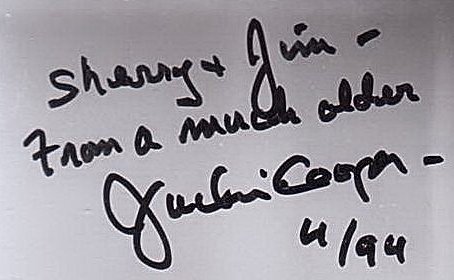 Sherry + Jim -
From a much older
Jackie Cooper -
4/94